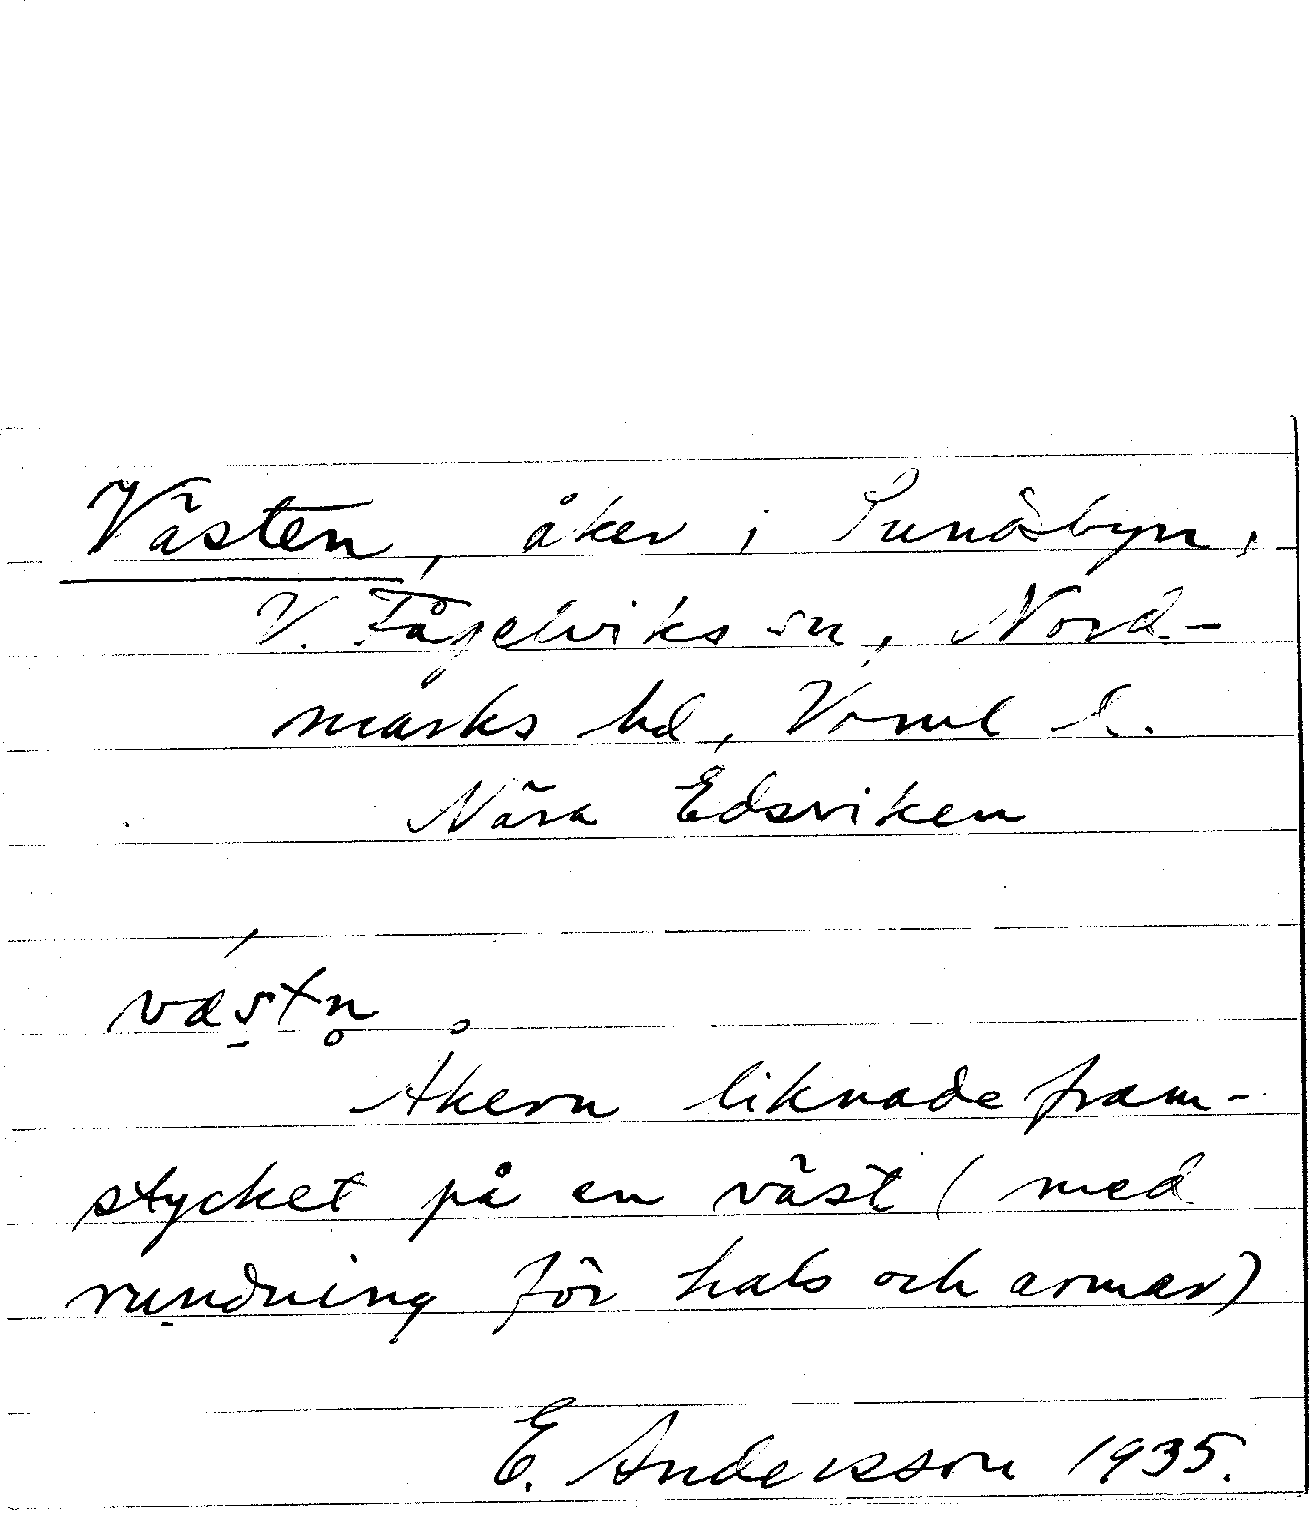 Västen, åker i Sundsbyn,
V. Fågelviks sn, Nord-
marks hd, Verml l.
Nära Edsviken
væstn̥
Åkern liknade fram-
stycket på en väst (med
rundning för hals och armar)
E. Andersson 1935.